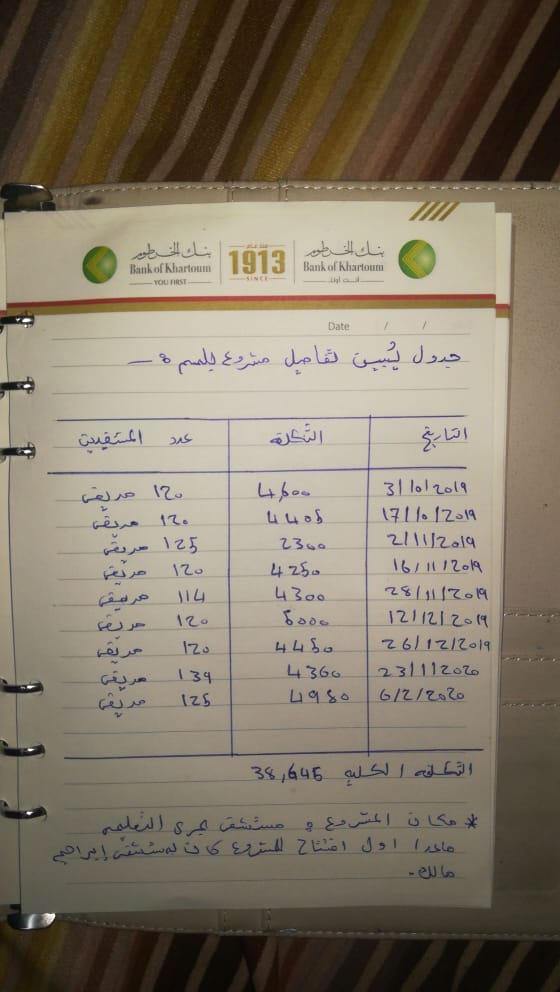 بنك الخرطوم منذ عام بنك الخرطوم
Bank of Khartoum 1913 Bank of Khartoum
YOU FIRST SINCE أنت أولاً
Date / /
جدول يُبين تفاصيل مشروع بلسم :-
التاريخ التكلفة عدد المستفيدين
3/10/2019 4600 120 مريض
17/10/2019 4405 120 مريض
2/11/2019 2300 125 مريض
16/11/2019 4250 120 مريض
28/11/2019 4300 114 مريض
12/12/2019 5000 120 مريض
26/12/2019 4450 120 مريض
23/1/2020 4360 139 مريض
6/2/2020 4980 125 مريض
التكلفه الكليه 38,645
* مكان المشروع : مستشفى بحري التعليميه
ماعدا اول افتتاح للمشروع كان بمستشفى إبراهيم
مالك.